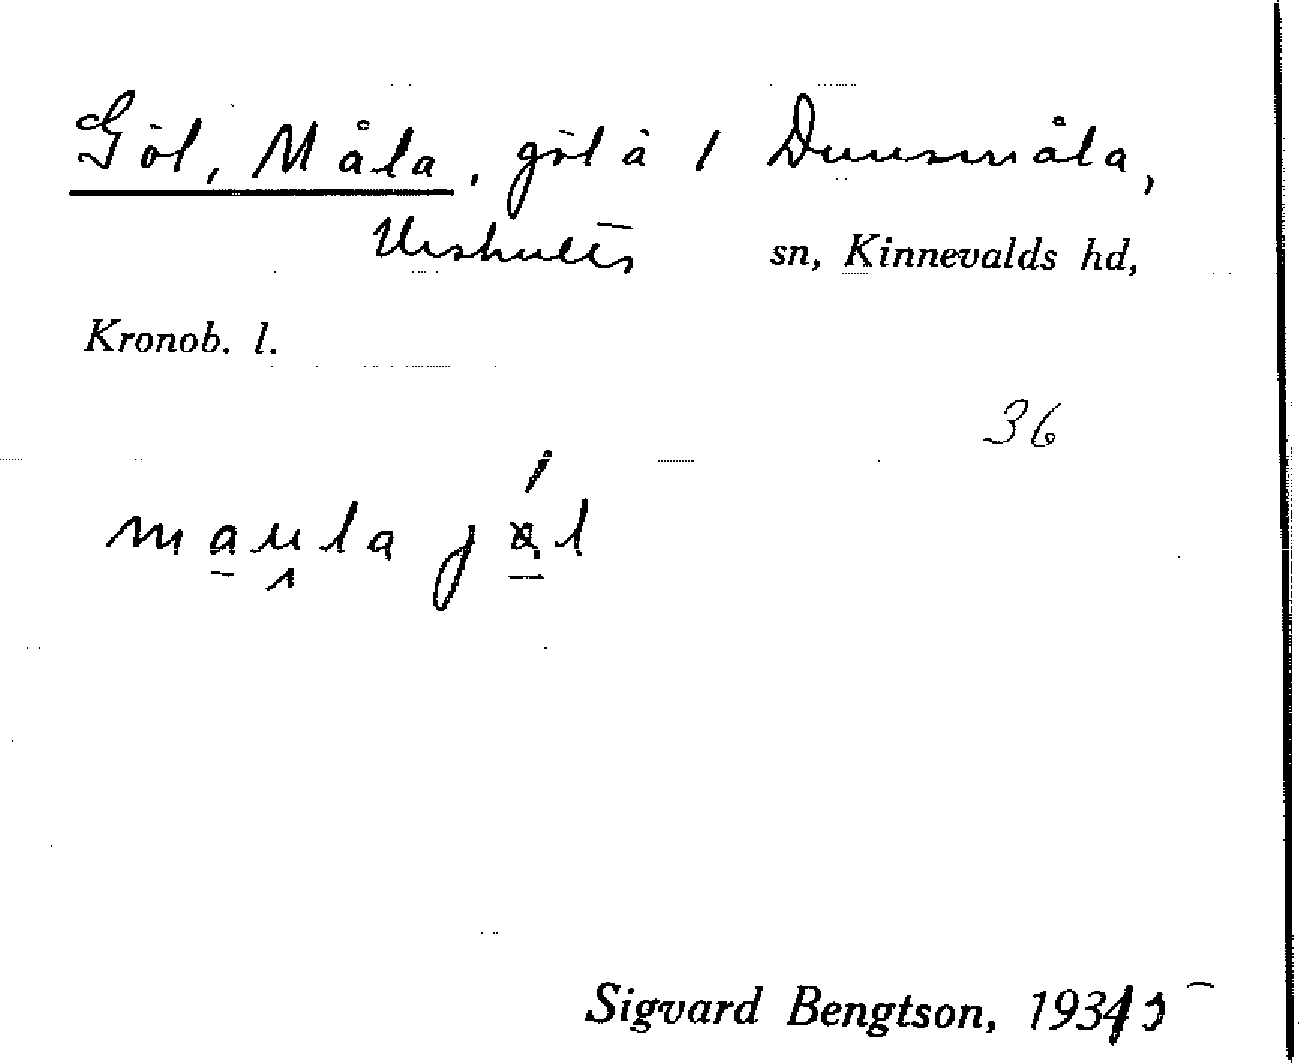 Göl, Måla, göl å 1 Dunsmåla,
Urshults sn, Kinnevalds hd,
Kronob. l.
36
Sigvard Bengtson, 1935